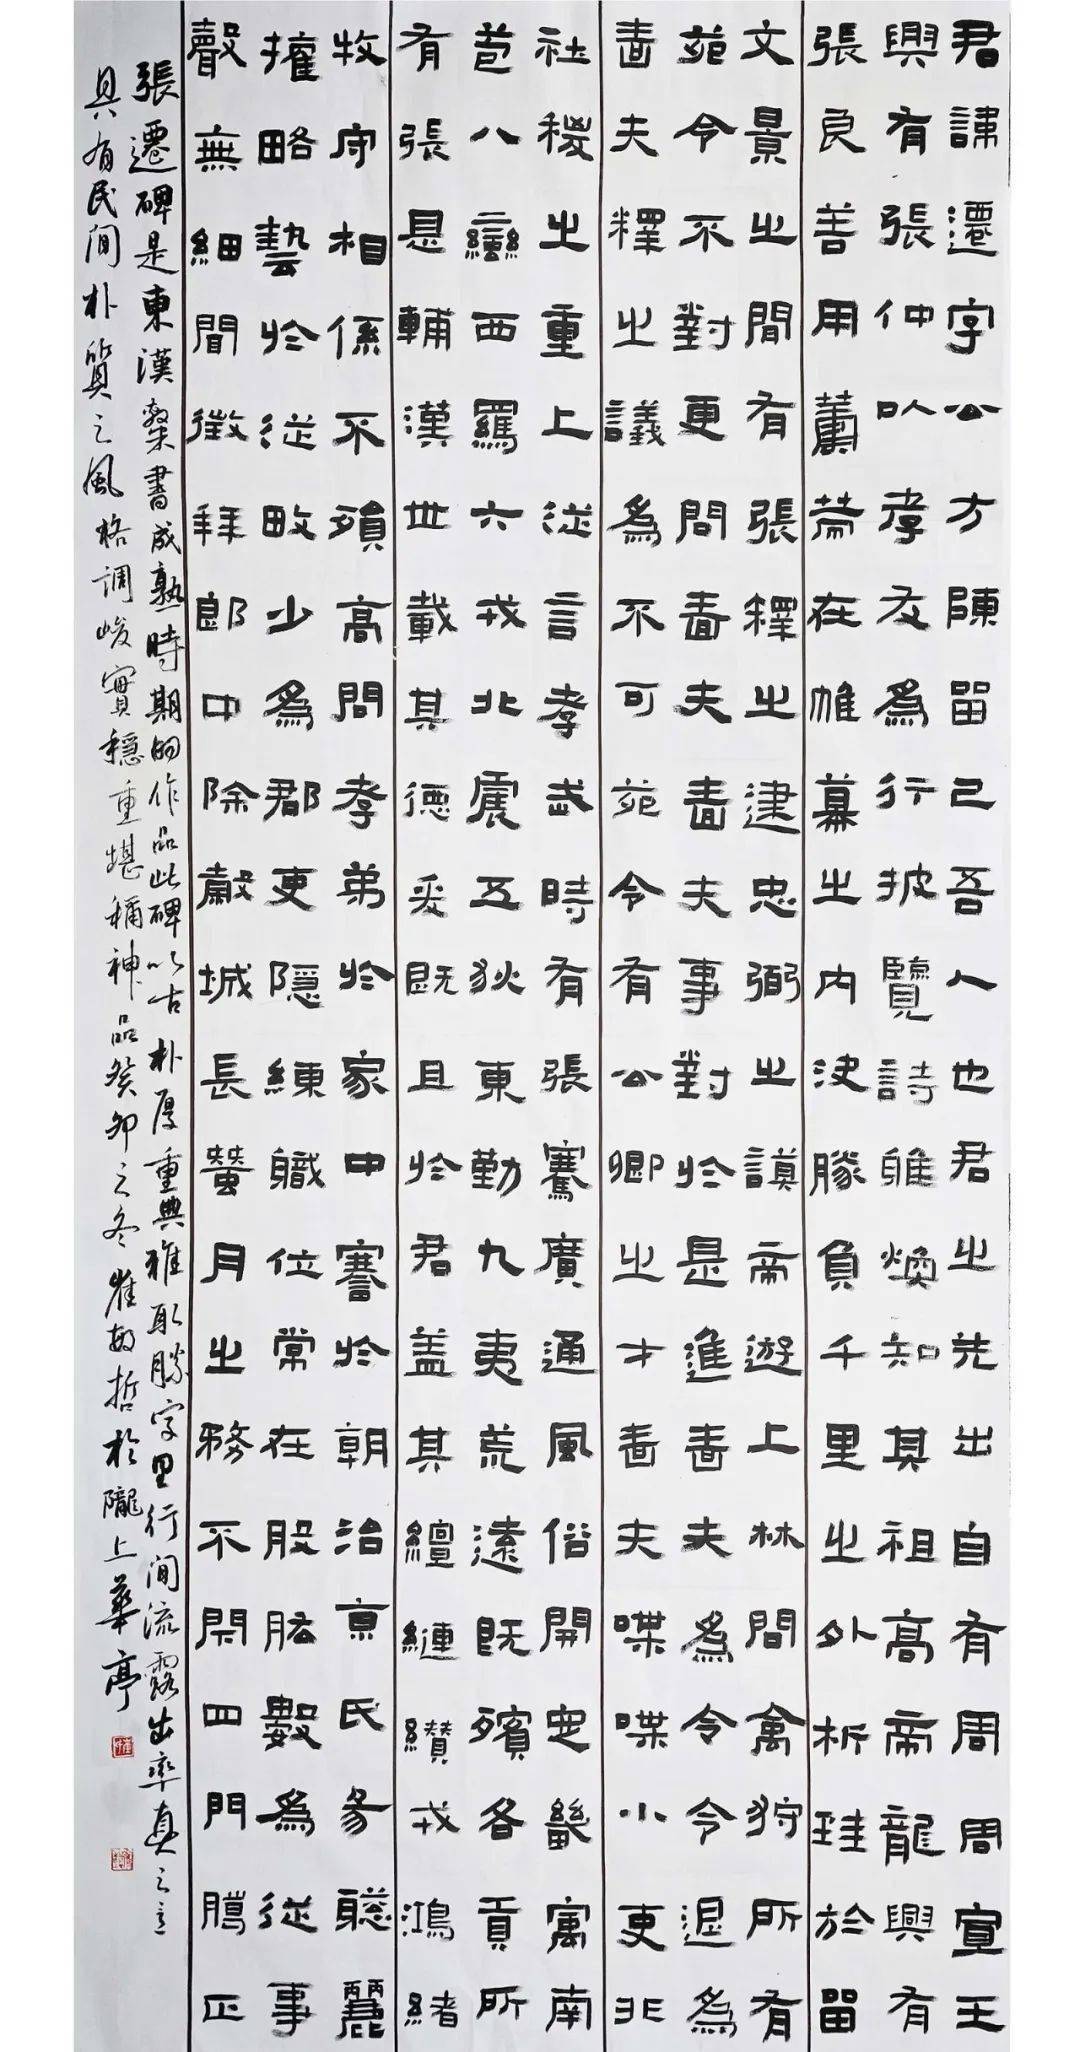 君諱遷字公方陳留己吾人也君之先出自有周周宣王
興有張仲以孝友為行披覽詩雅煥知其祖高帝龍興有
張良善用籌策在帷幕之內決勝負千里之外析珪於留
文景之間有張釋之建忠弼之謨帝遊上林問禽狩所有
苑令不對更問嗇夫嗇夫事對於是進嗇夫為令令退為
嗇夫釋之議為不可苑令有公卿之才嗇夫喋喋小吏非
社稷之重上從言孝武時有張騫廣通風俗開定畿寓南
苞八蠻西羈六戎北震五狄東勤九夷荒遠既殯各貢所
有張是輔漢世載其德爰既且於君蓋其繵縺纘戎鴻緒
牧守相係不殞高問孝弟於家中謇於朝治京氏易聰麗
權略藝於從畋少為郡吏隱練職位常在股肱數為從事
聲無細聞徵拜郎中除穀城長蠶月之務不閉四門臘正
張遷碑是東漢隸書成熟時期的作品此碑以古朴厚重典雅取勝字里行間流露出率真之意
具有民間朴質之風格調峻實穩重堪稱神品癸卯之冬崔敏哲於隴上華亭